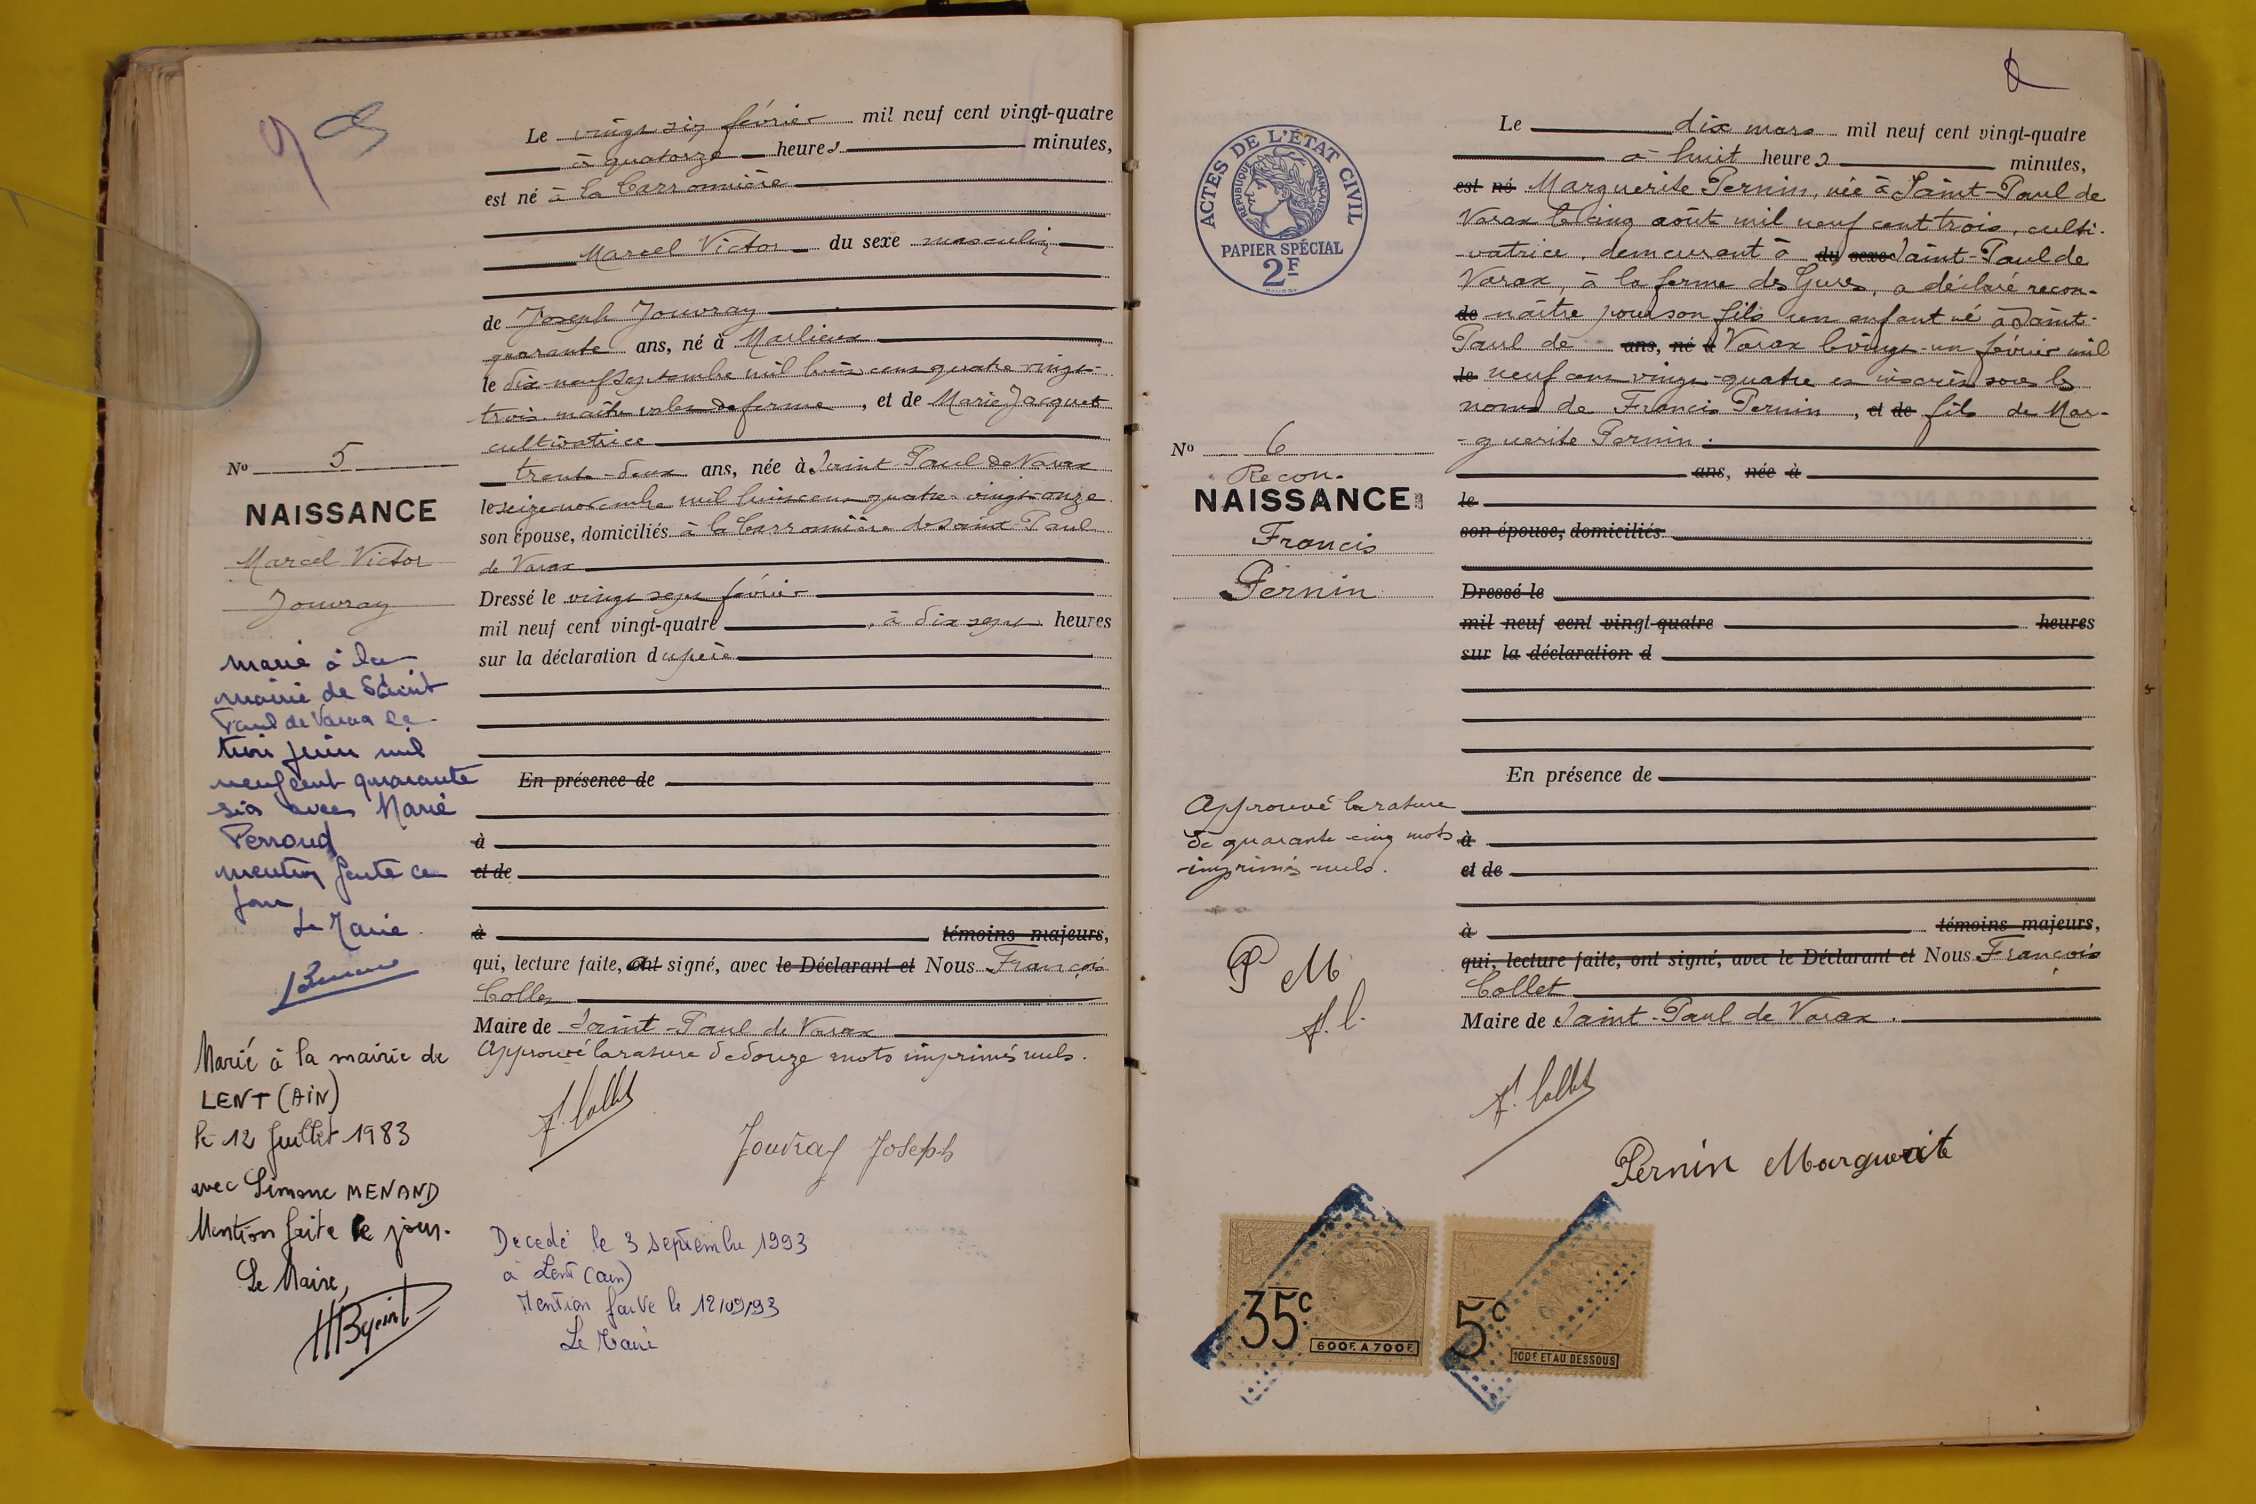 Le vingt six février mil neuf cent vingt-quatre
à quatorze heures minutes,
est né à la Carronnière
Marcel Victor du sexe masculin
de Joseph Jouvray
quarante ans, né à Marlieux
le dix-neuf septembre mil huit cent quatre vingt-
trois maître valet de ferme, et de Marie Jacquet
cultivatrice
trente-deux ans, née à Saint Paul de Varax
le seize novembre mil huit cent quatre-vingt-onze
son épouse, domiciliés à la Carronnière de Saint Paul
de Varax
Dressé le vingt sept février
mil neuf cent vingt-quatre, à dix sept heures
sur la déclaration du père
En présence de
à
et de
à témoins majeurs,
qui, lecture faite, ont signé, avec le Déclarant et Nous François
Collet
Maire de Saint-Paul de Varax
Approuvé la rature de douze mots imprimés nuls.
F. Collet
Jouvray Joseph
No 5
NAISSANCE
Marcel Victor
Jouvray
Marié à la
mairie de Saint
Paul de Varax le
trois juin mil
neuf cent quarante
six avec Marie
Perroud
mention faite ce
jour
Le Maire
Marié à la mairie de
LENT (AIN)
le 12 Juillet 1983
avec Simone MENAND
Mention faite le jour.
Le Maire,
Décédé le 3 septembre 1993
à Lent (ain)
Mention faite le 12/09/93
Le Maire
ACTES DE L'ÉTAT CIVIL
RÉPUBLIQUE FRANÇAISE
PAPIER SPÉCIAL
2F
Le dix mars mil neuf cent vingt-quatre
à huit heures minutes,
est né Marguerite Pernin, née à Saint-Paul de
Varax le cinq août mil neuf cent trois, culti-
vatrice, demeurant à du sexe Saint-Paul de
Varax, à la ferme des Gures, a déclaré recon-
de naître pour son fils un enfant né à Saint-
Paul de ans, né à Varax le vingt-un février mil
le neuf cent vingt-quatre et inscrit sous les
noms de Francis Pernin, et de fils de Mar-
guerite Pernin.
ans, née à
le
son épouse, domiciliés
Dressé le
mil neuf cent vingt-quatre heures
sur la déclaration d
En présence de
à
et de
à témoins majeurs,
qui, lecture faite, ont signé, avec le Déclarant et Nous François
Collet
Maire de Saint-Paul de Varax.
F. Collet
Pernin Marguerite
No 6
Recon.
NAISSANCE
Francis
Pernin
Approuvé la rature
de quarante-cinq mots
imprimés nuls.
P M
F. C.
35c
600F. A 700F.
5c
100F. ET AU DESSOUS